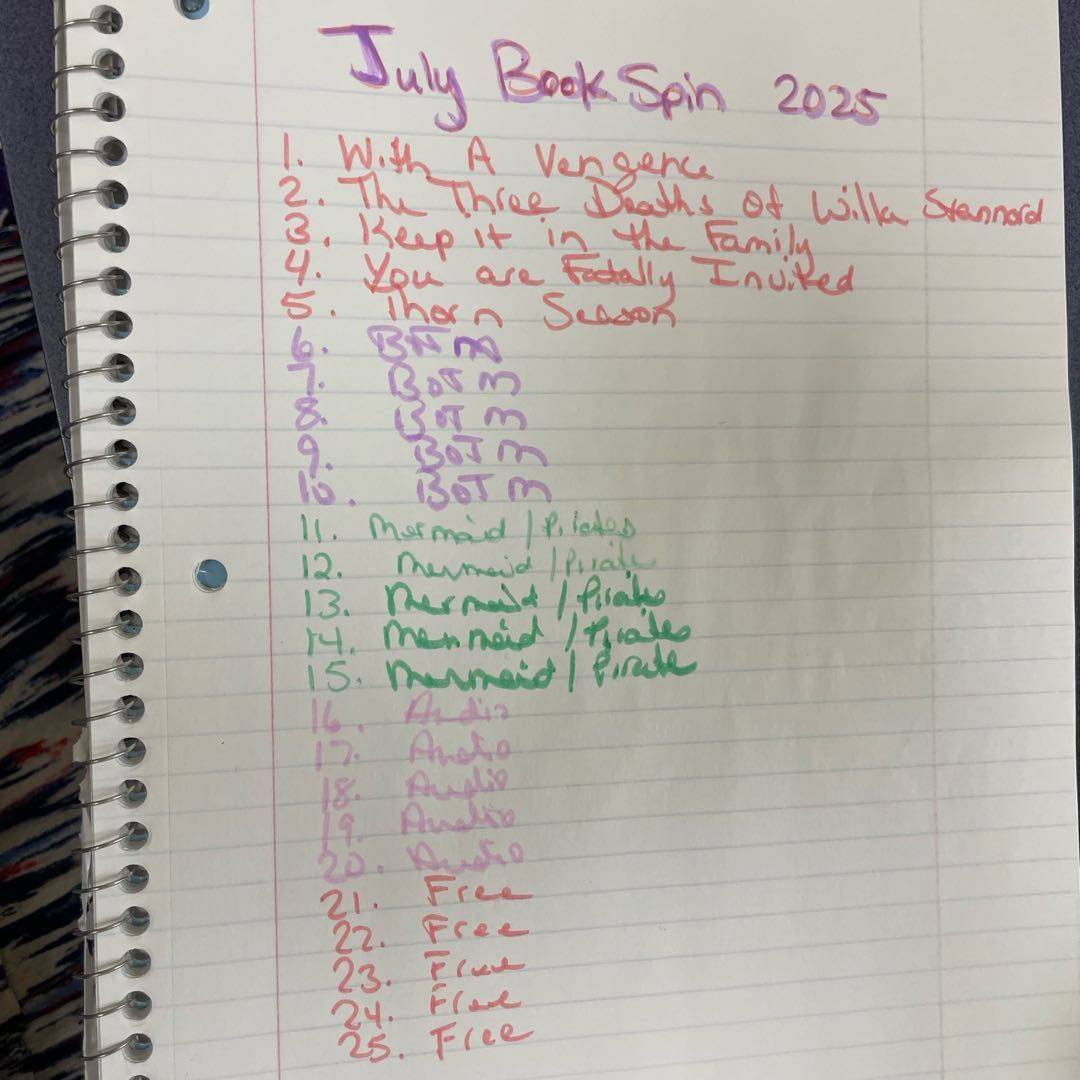 July BookSpin 2025
1. With A Vengence
2. The Three Deaths of Willa Stannard
3. Keep it in the Family
4. You are Fatally Invited
5. Thorn Season
6. BOTM
7. BOTM
8. BOTM
9. BOTM
10. BOTM
11. Mermaid / Pirates
12. Mermaid / Pirate
13. Mermaid / Pirates
14. Mermaid / Pirates
15. Mermaid / Pirate
16. Audio
17. Audio
18. Audio
19. Audio
20. Audio
21. Free
22. Free
23. Free
24. Free
25. Free